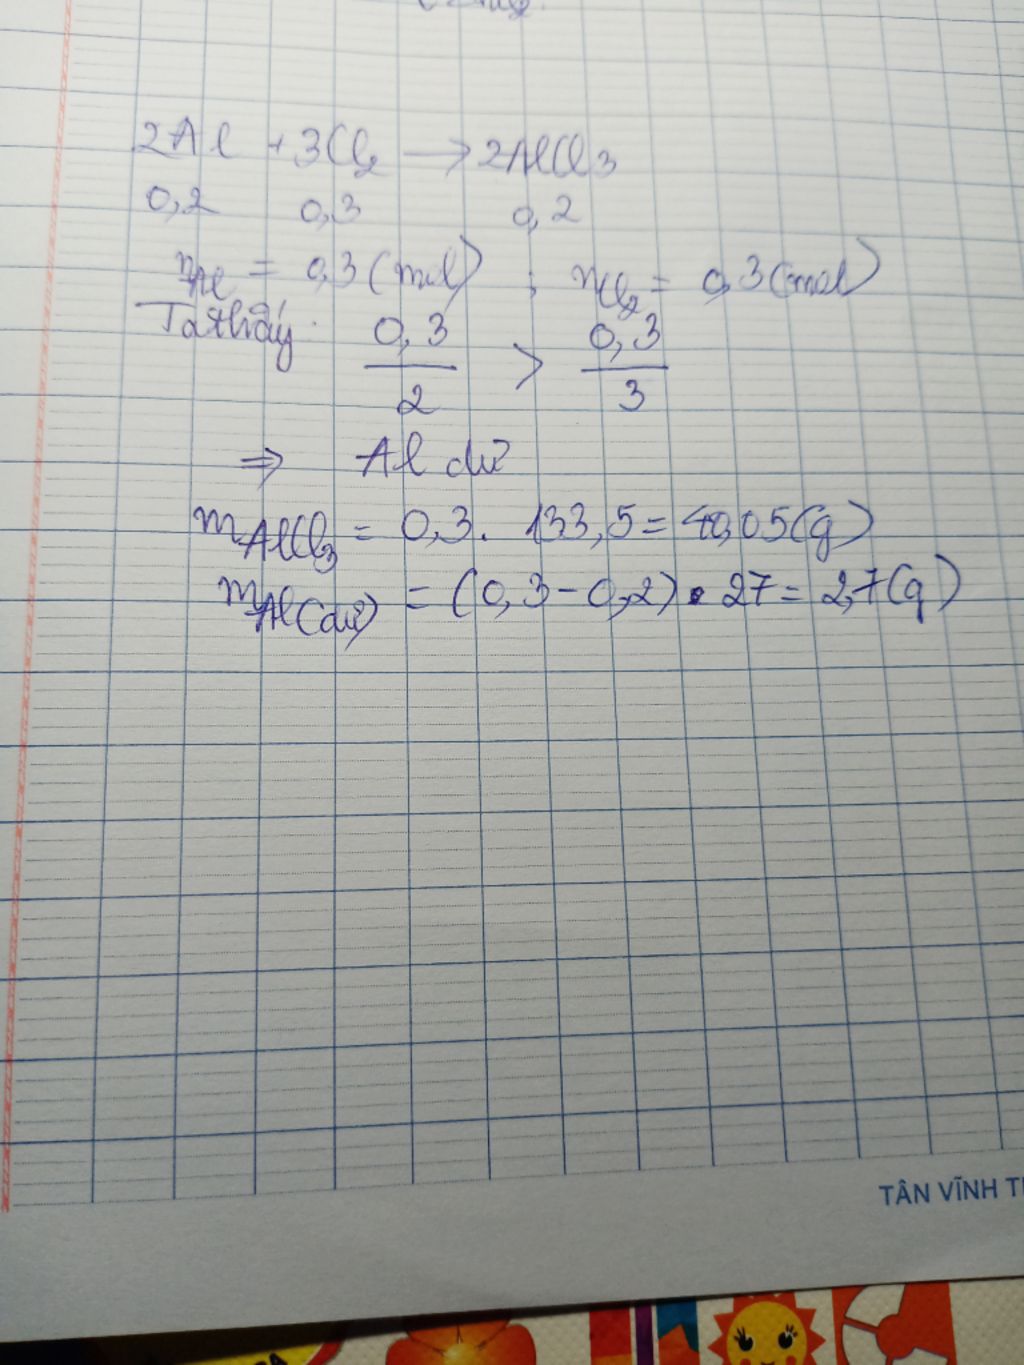 2Al + 3Cl₂ → 2AlCl₃
0,2 0,3 0,2
nAl = 0,3 (mol) ; nCl₂ = 0,3 (mol)
Ta thấy: 0,3/2 > 0,3/3
⇒ Al dư
mAlCl₃ = 0,3. 133,5 = 40,05(g)
mAl(dư) = (0,3 - 0,2) . 27 = 2,7(g)
TÂN VĨNH